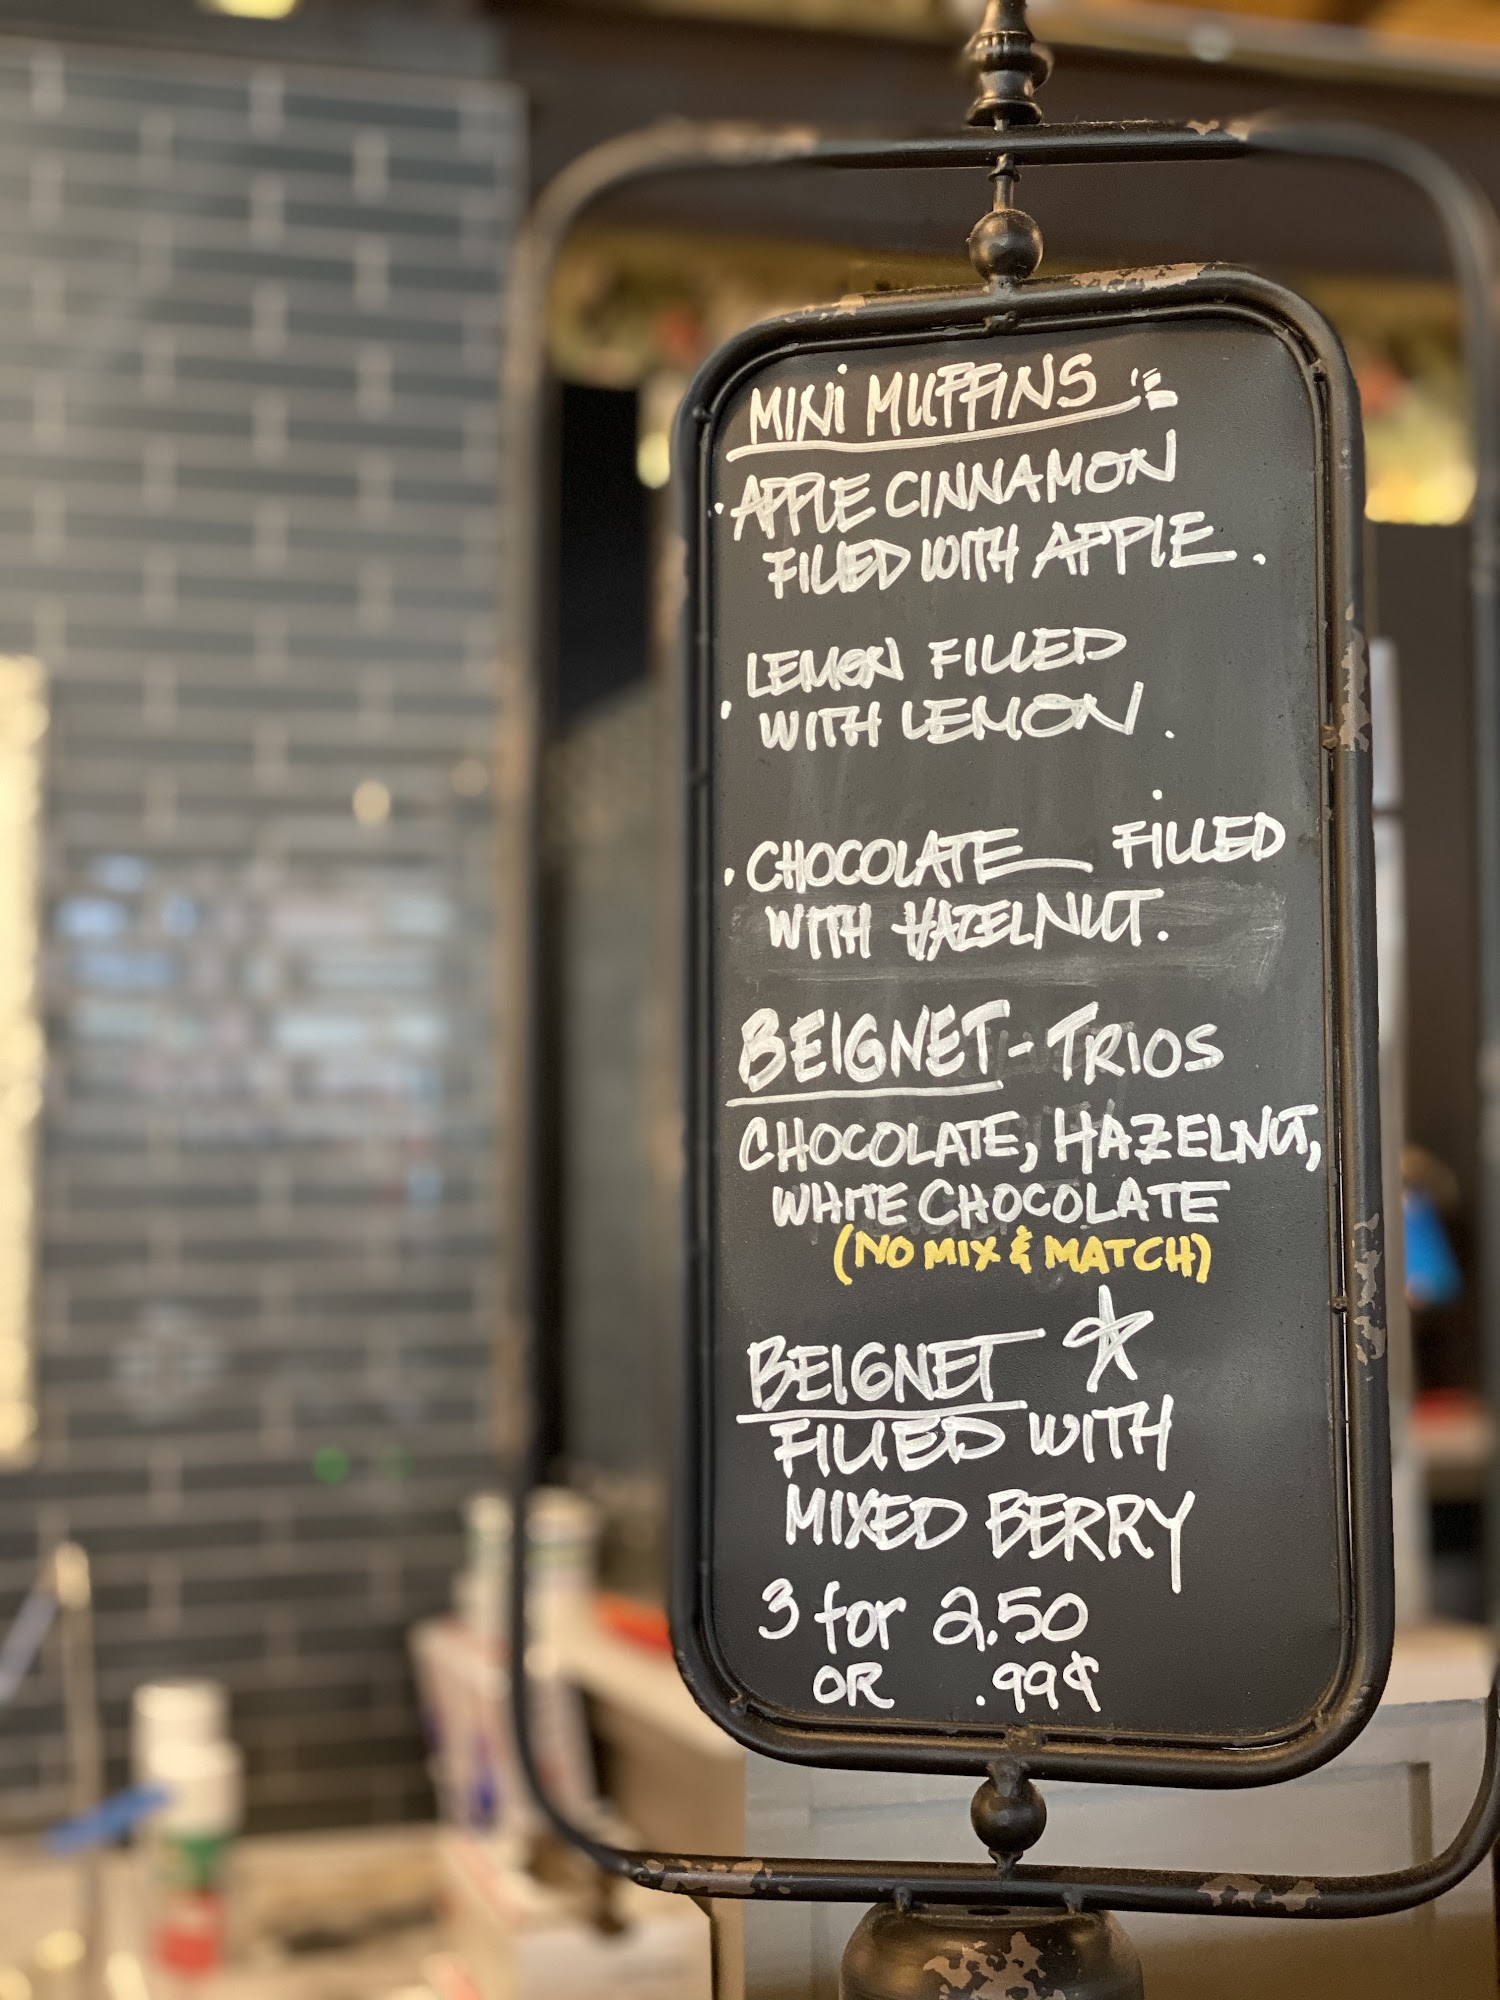 MINI MUFFINS
· APPLE CINNAMON
FILLED WITH APPLE.
LEMON FILLED
· WITH LEMON.
· CHOCOLATE FILLED
WITH HAZELNUT.
BEIGNET - TRIOS
CHOCOLATE, HAZELNUT,
WHITE CHOCOLATE
(NO MIX & MATCH)
BEIGNET
FILLED WITH
MIXED BERRY
3 for 2.50
OR .99¢